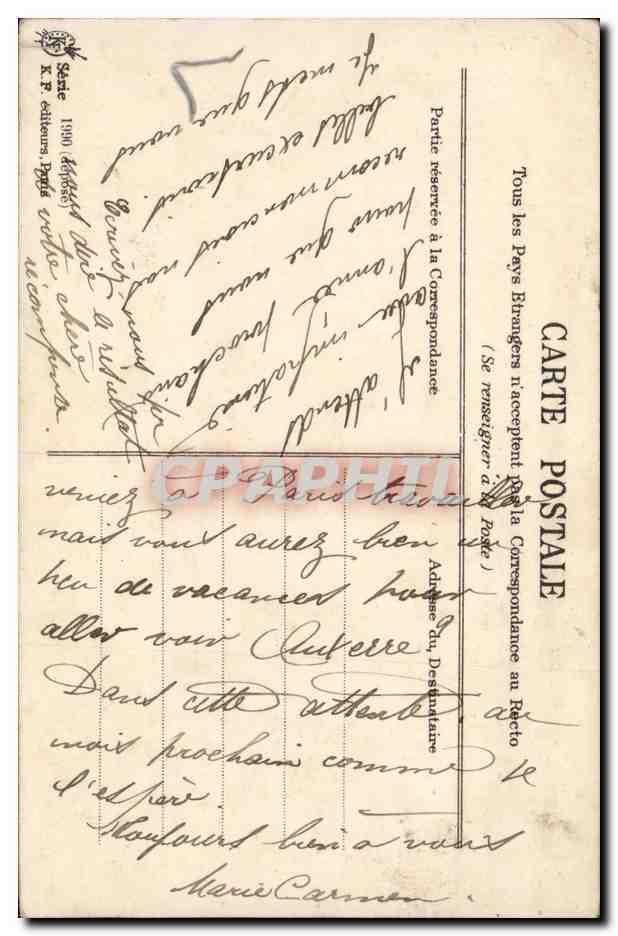 CARTE POSTALE
Tous les Pays Etrangers n'acceptent pas la Correspondance au Recto
(Se renseigner à la Poste)
Partie réservée à la Correspondance
Adresse du Destinataire
j'attends
avec
l'année prochaine
pour que nous
recommencions nos
belles excursions.
Je mets que vous
veniez à Paris travailler
mais vous aurez bien un
peu de vacances pour
aller voir Auxerre
Dans cette attente, au
mois prochain comme je
l'espère.
Toujours bien à vous
Marie Carmen.
Ecrivez nous pr
nous dire le résultat
de votre chère
récompense.
K F
Série 1990 (déposé)
K. F. éditeurs, Paris
CPAPHIL